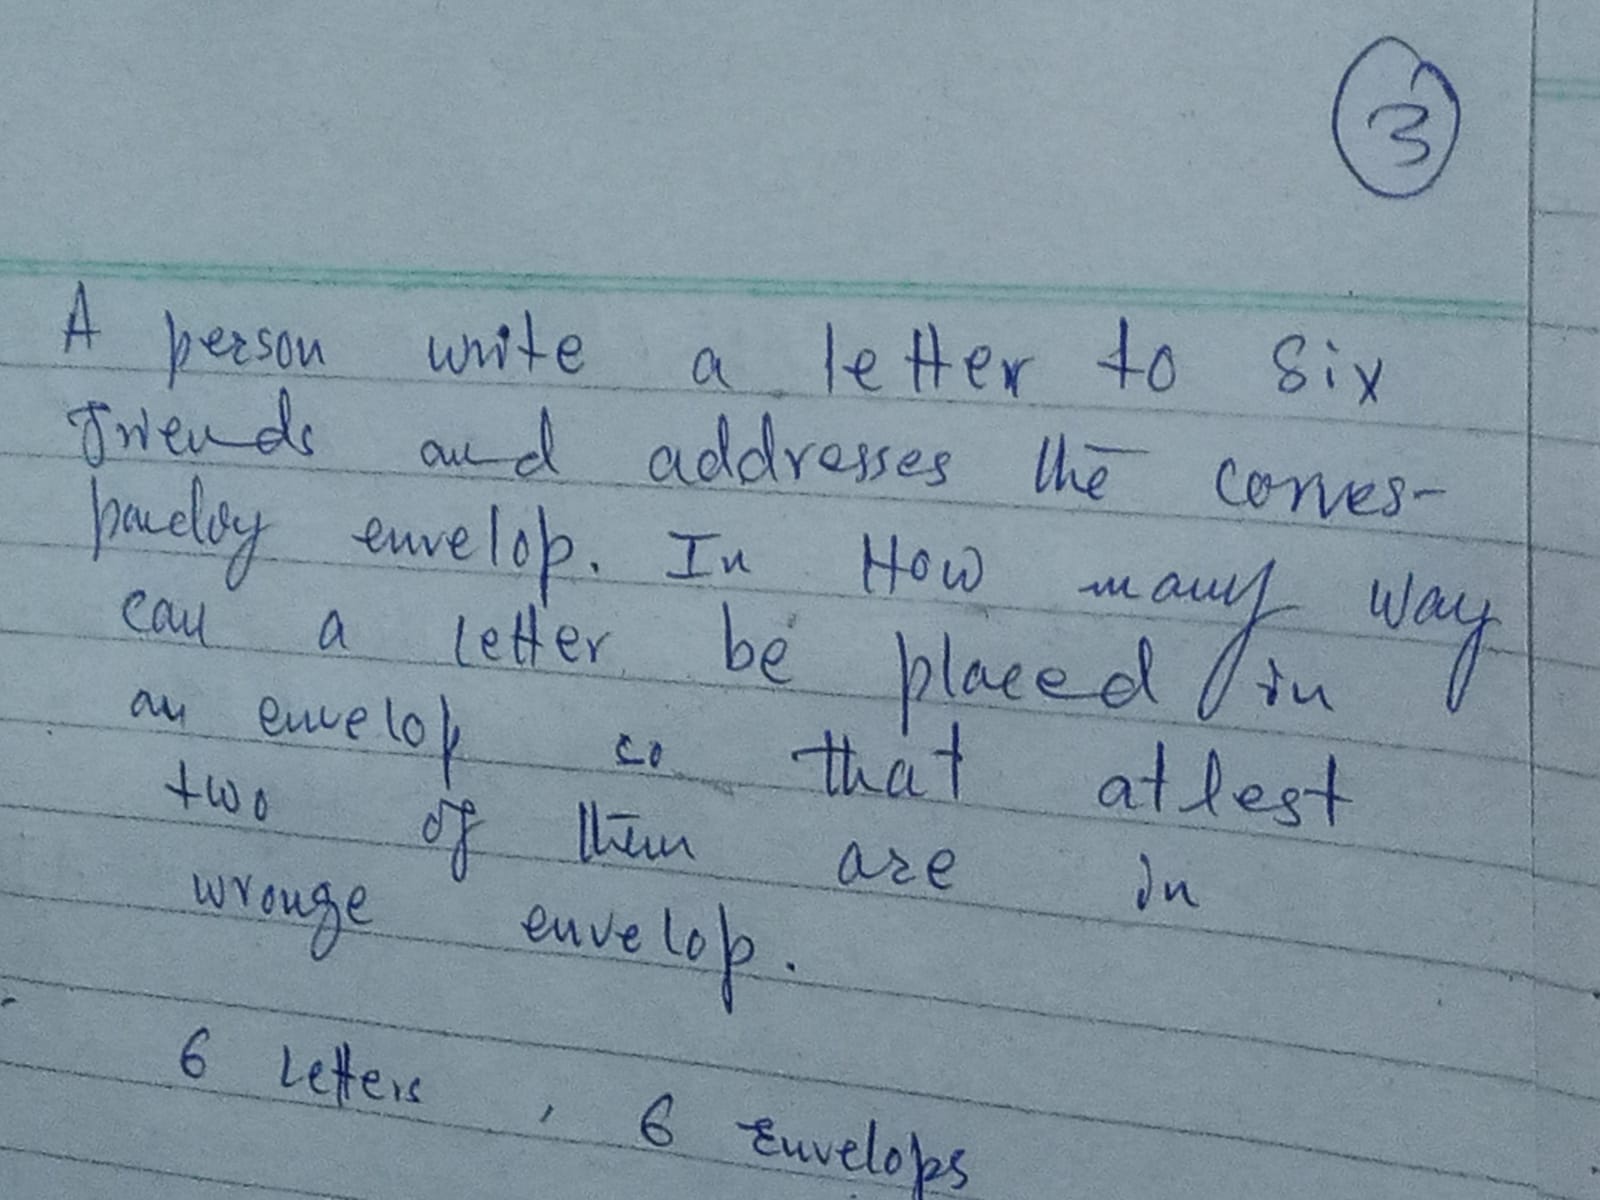 3
A person write a letter to six
friends and addresses the corres-
pondoy envelop. In How many way
can a letter be placed in
an envelop so that atlest
two of them are in
wronge envelop.
6 Letters , 6 Envelops